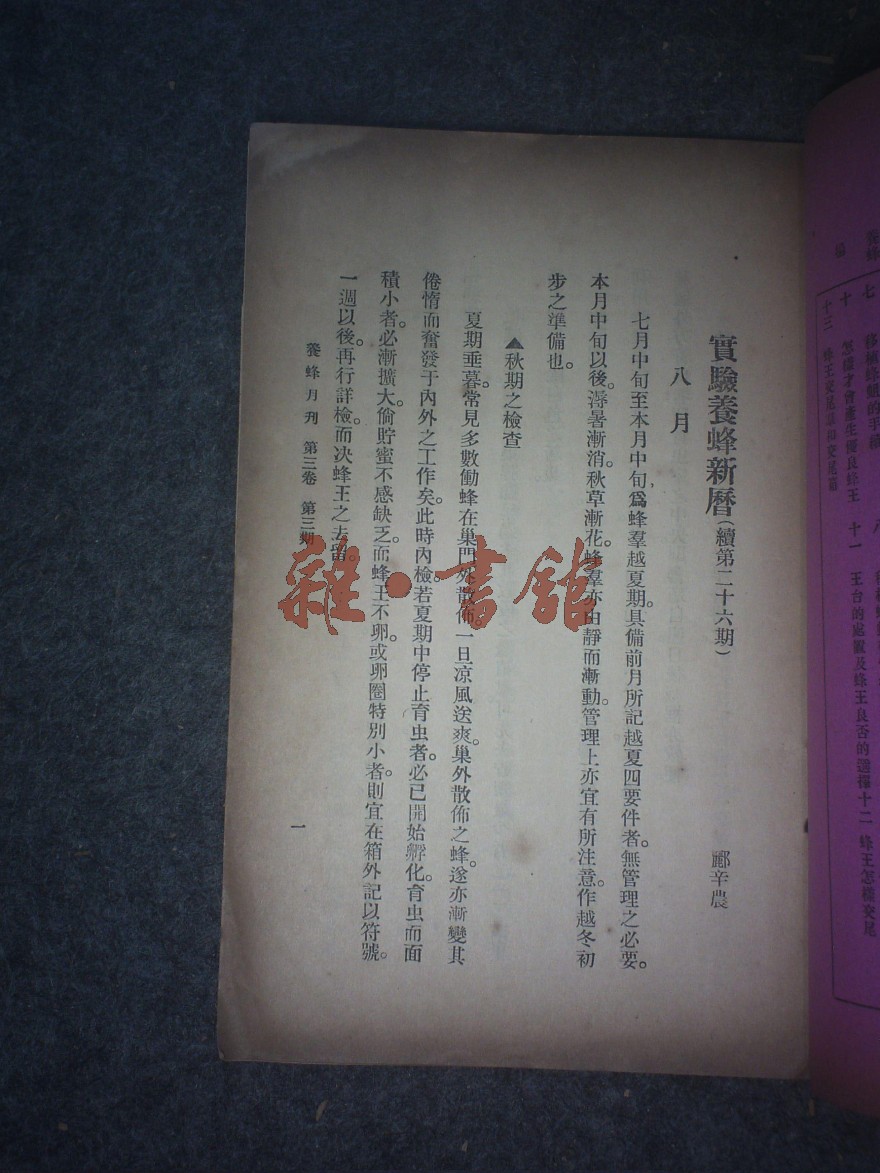 實驗養蜂新曆(續第二十六期)
酈辛農
八月
七月中旬至本月中旬,爲蜂羣越夏期。具備前月所記越夏四要件者。無管理之必要。
本月中旬以後。溽暑漸消。秋草漸花。蜂羣亦由靜而漸動。管理上亦宜有所注意。作越冬初
步之準備也。
▲秋期之檢查
夏期垂暮。常見多數働蜂在巢門外散佈。一旦凉風送爽。巢外散佈之蜂。遂亦漸變其
倦惰而奮發于內外之工作矣。此時內檢若夏期中停止育虫者。必已開始孵化。育虫而面
積小者。必漸擴大。倘貯蜜不感缺乏。而蜂王不卵。或卵圈特別小者。則宜在箱外記以符號。
一週以後。再行詳檢。而决蜂王之去留。
養蜂月刊 第三卷 第三期
一
雜·書館
養蜂
七 移殖蜂蛆的手續
十 怎樣才會產生優良蜂王 十一 王台的處置及蜂王良否的選擇 十二 蜂王怎樣交尾
十三 蜂王交尾